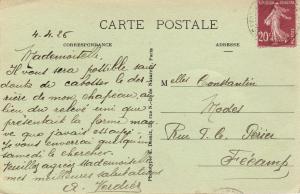 CARTE POSTALE
4.4.26
CORRESPONDANCE
ADRESSE
Mademoiselle
Il vous sera possible sans
doute de cabosser le der
rière de mon chapeau, au
lieu du relevé uni que
présentait la forme mag.
ve que j'avais essayée.
Je vous enverrai quelqu'un
samedi le chercher.
Veuillez agréer Mademoiselle
mes meilleures salutations
A. Verdier
Melles Constantin
Modes
Rue J. C. Périer
Fécamp
20c